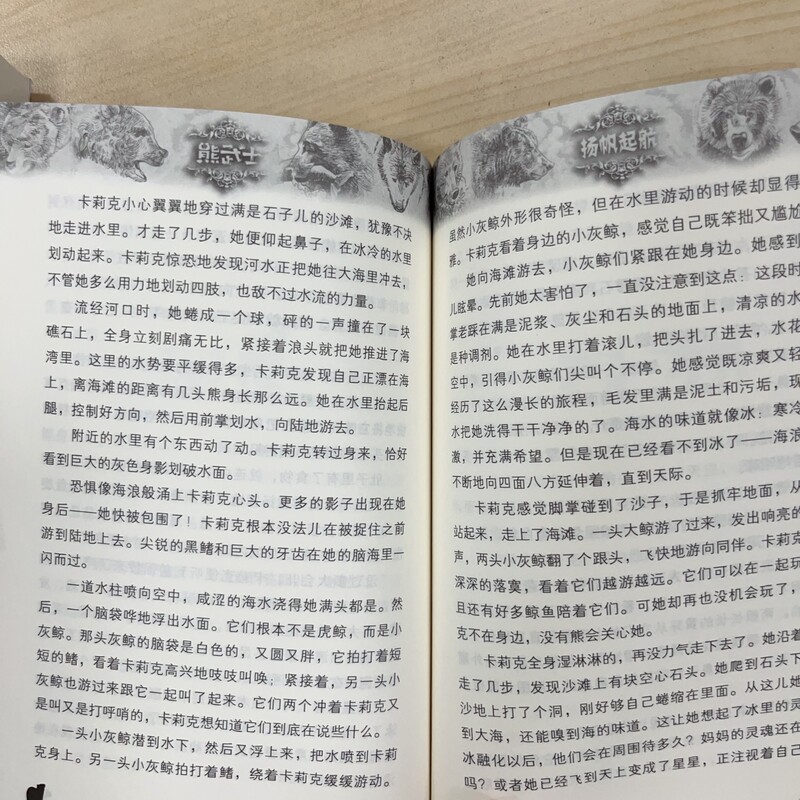 熊武士
卡莉克小心翼翼地穿过满是石子儿的沙滩，犹豫不决
地走进水里。才走了几步，她便仰起鼻子，在冰冷的水里
划动起来。卡莉克惊恐地发现河水正把她往大海里冲去，
不管她多么用力地划动四肢，也敌不过水流的力量。
流经河口时，她蜷成一个球，砰的一声撞在了一块
礁石上，全身立刻剧痛无比，紧接着浪头就把她推进了海
湾里。这里的水势要平缓得多，卡莉克发现自己正漂在海
上，离海滩的距离有几头熊身长那么远。她在水里抬起后
腿，控制好方向，然后用前掌划水，向陆地游去。
附近的水里有个东西动了动。卡莉克转过身来，恰好
看到巨大的灰色身影划破水面。
恐惧像海浪般涌上卡莉克心头。更多的影子出现在她
身后——她快被包围了！卡莉克根本没法儿在被捉住之前
游到陆地上去。尖锐的黑鳍和巨大的牙齿在她的脑海里一
闪而过。
一道水柱喷向空中，咸涩的海水浇得她满头都是。然
后，一个脑袋哗地浮出水面。它们根本不是虎鲸，而是小
灰鲸。那头灰鲸的脑袋是白色的，又圆又胖，它拍打着短
短的鳍，看着卡莉克高兴地吱吱叫唤；紧接着，另一头小
灰鲸也游过来跟它一起叫了起来。它们两个冲着卡莉克又
是叫又是打呼哨的，卡莉克想知道它们到底在说些什么。
一头小灰鲸潜到水下，然后又浮上来，把水喷到卡莉
克身上。另一头小灰鲸拍打着鳍，绕着卡莉克缓缓游动。
扬帆起航
虽然小灰鲸外形很奇怪，但在水里游动的时候却显得
雅。卡莉克看着身边的小灰鲸，感觉自己既笨拙又尴尬
她向海滩游去，小灰鲸们紧跟在她身边。她感到
儿眩晕。先前她太害怕了，一直没注意到这点：这段时
掌老踩在满是泥浆、灰尘和石头的地面上，清凉的水
是种调剂。她在水里打着滚儿，把头扎了进去，水花
空中，引得小灰鲸们尖叫个不停。她感觉既凉爽又轻
经历了这么漫长的旅程，毛发里满是泥土和污垢，现
水把她洗得干干净净的了。海水的味道就像冰：寒冷
激，并充满希望。但是现在已经看不到冰了——海浪
不断地向四面八方延伸着，直到天际。
卡莉克感觉脚掌碰到了沙子，于是抓牢地面，从
站起来，走上了海滩。一头大鲸游了过来，发出响亮的
声，两头小灰鲸翻了个跟头，飞快地游向同伴。卡莉
深深的落寞，看着它们越游越远。它们可以在一起玩
且还有好多鲸鱼陪着它们。可她却再也没机会玩了，
克不在身边，没有熊会关心她。
卡莉克全身湿淋淋的，再没力气走下去了。她沿着
走了几步，发现沙滩上有块空心石头。她爬到石头下
沙地上打了个洞，刚好够自己蜷缩在里面。从这儿她
到大海，还能嗅到海的味道。这让她想起了冰里的灵
冰融化以后，他们会在周围待多久？妈妈的灵魂还在
吗？或者她已经飞到天上变成了星星，正注视着自己